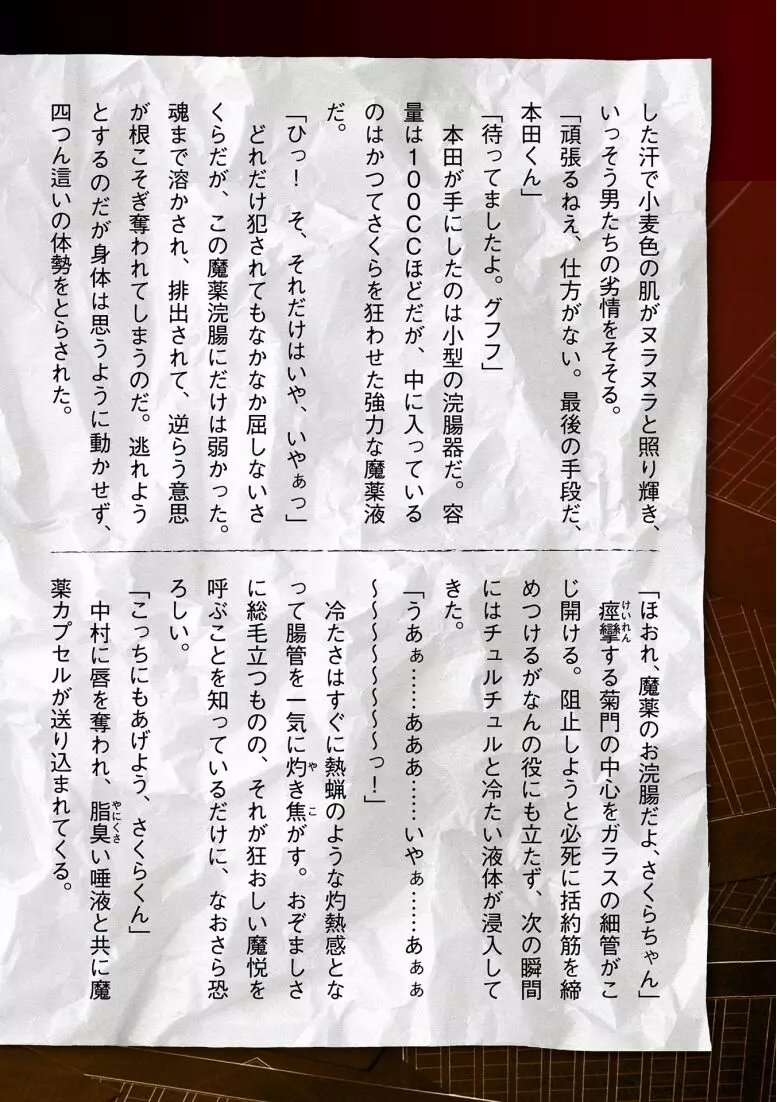 した汗で小麦色の肌がヌラヌラと照り輝き、
いっそう男たちの劣情をそそる。
「頑張るねえ、仕方がない。最後の手段だ、
本田くん」
「待ってましたよ。グフフ」
本田が手にしたのは小型の浣腸器だ。容
量は100CCほどだが、中に入っている
のはかつてさくらを狂わせた強力な魔薬液
だ。
「ひっ！　そ、それだけはいや、いやぁっ」
どれだけ犯されてもなかなか屈しないさ
くらだが、この魔薬浣腸にだけは弱かった。
魂まで溶かされ、排出されて、逆らう意思
が根こそぎ奪われてしまうのだ。逃れよう
とするのだが身体は思うように動かせず、
四つん這いの体勢をとらされた。
「ほおれ、魔薬のお浣腸だよ、さくらちゃん」
痙攣する菊門の中心をガラスの細管がこ
けいれん
じ開ける。阻止しようと必死に括約筋を締
めつけるがなんの役にも立たず、次の瞬間
にはチュルチュルと冷たい液体が浸入して
きた。
「うあぁ……あああ……いやぁ……あぁぁ
～～～～～～～～っ！」
冷たさはすぐに熱蝋のような灼熱感とな
って腸管を一気に灼き焦がす。おぞましさ
や　こ
に総毛立つものの、それが狂おしい魔悦を
呼ぶことを知っているだけに、なおさら恐
ろしい。
「こっちにもあげよう、さくらくん」
中村に唇を奪われ、脂臭い唾液と共に魔
やにくさ
薬カプセルが送り込まれてくる。